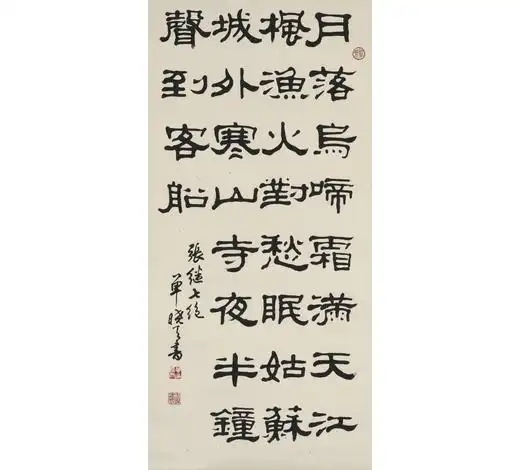 月落烏啼霜滿天江
楓漁火對愁眠姑蘇
城外寒山寺夜半鐘
聲到客船
張继七绝
單曉天書